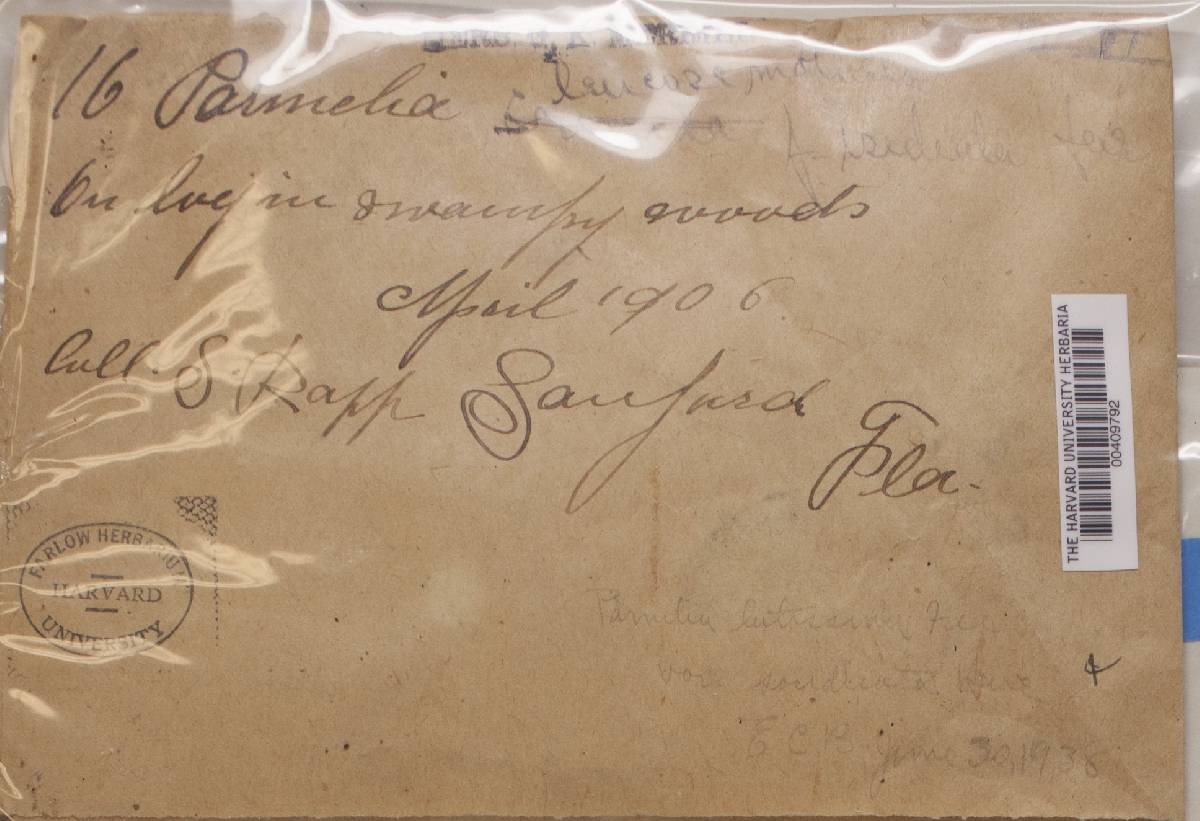 16 Parmelia
On log in swampy woods
April 1906.
Coll. S. Rapp Sanford
Fla.
THE HARVARD UNIVERSITY HERBARIA
00409792
FARLOW HERBARIUM
HARVARD
UNIVERSITY
Parmelia
var. sorediata
E C B June 30, 1938